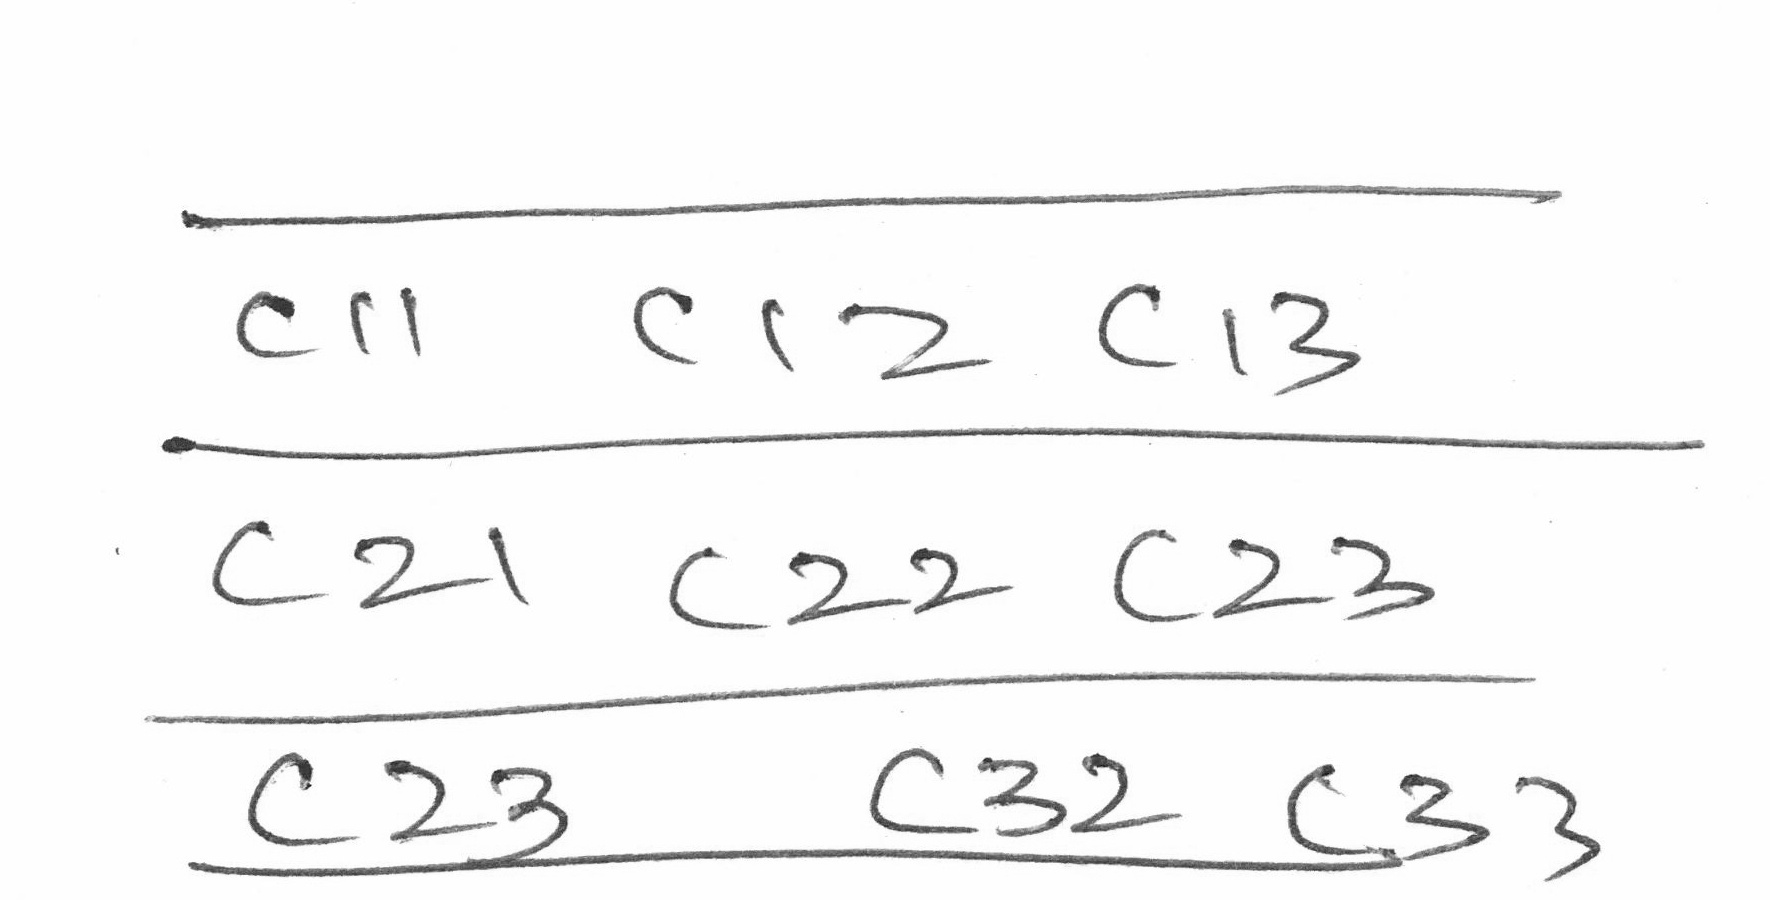 C11 C12 C13
C21 C22 C23
C23 C32 C33